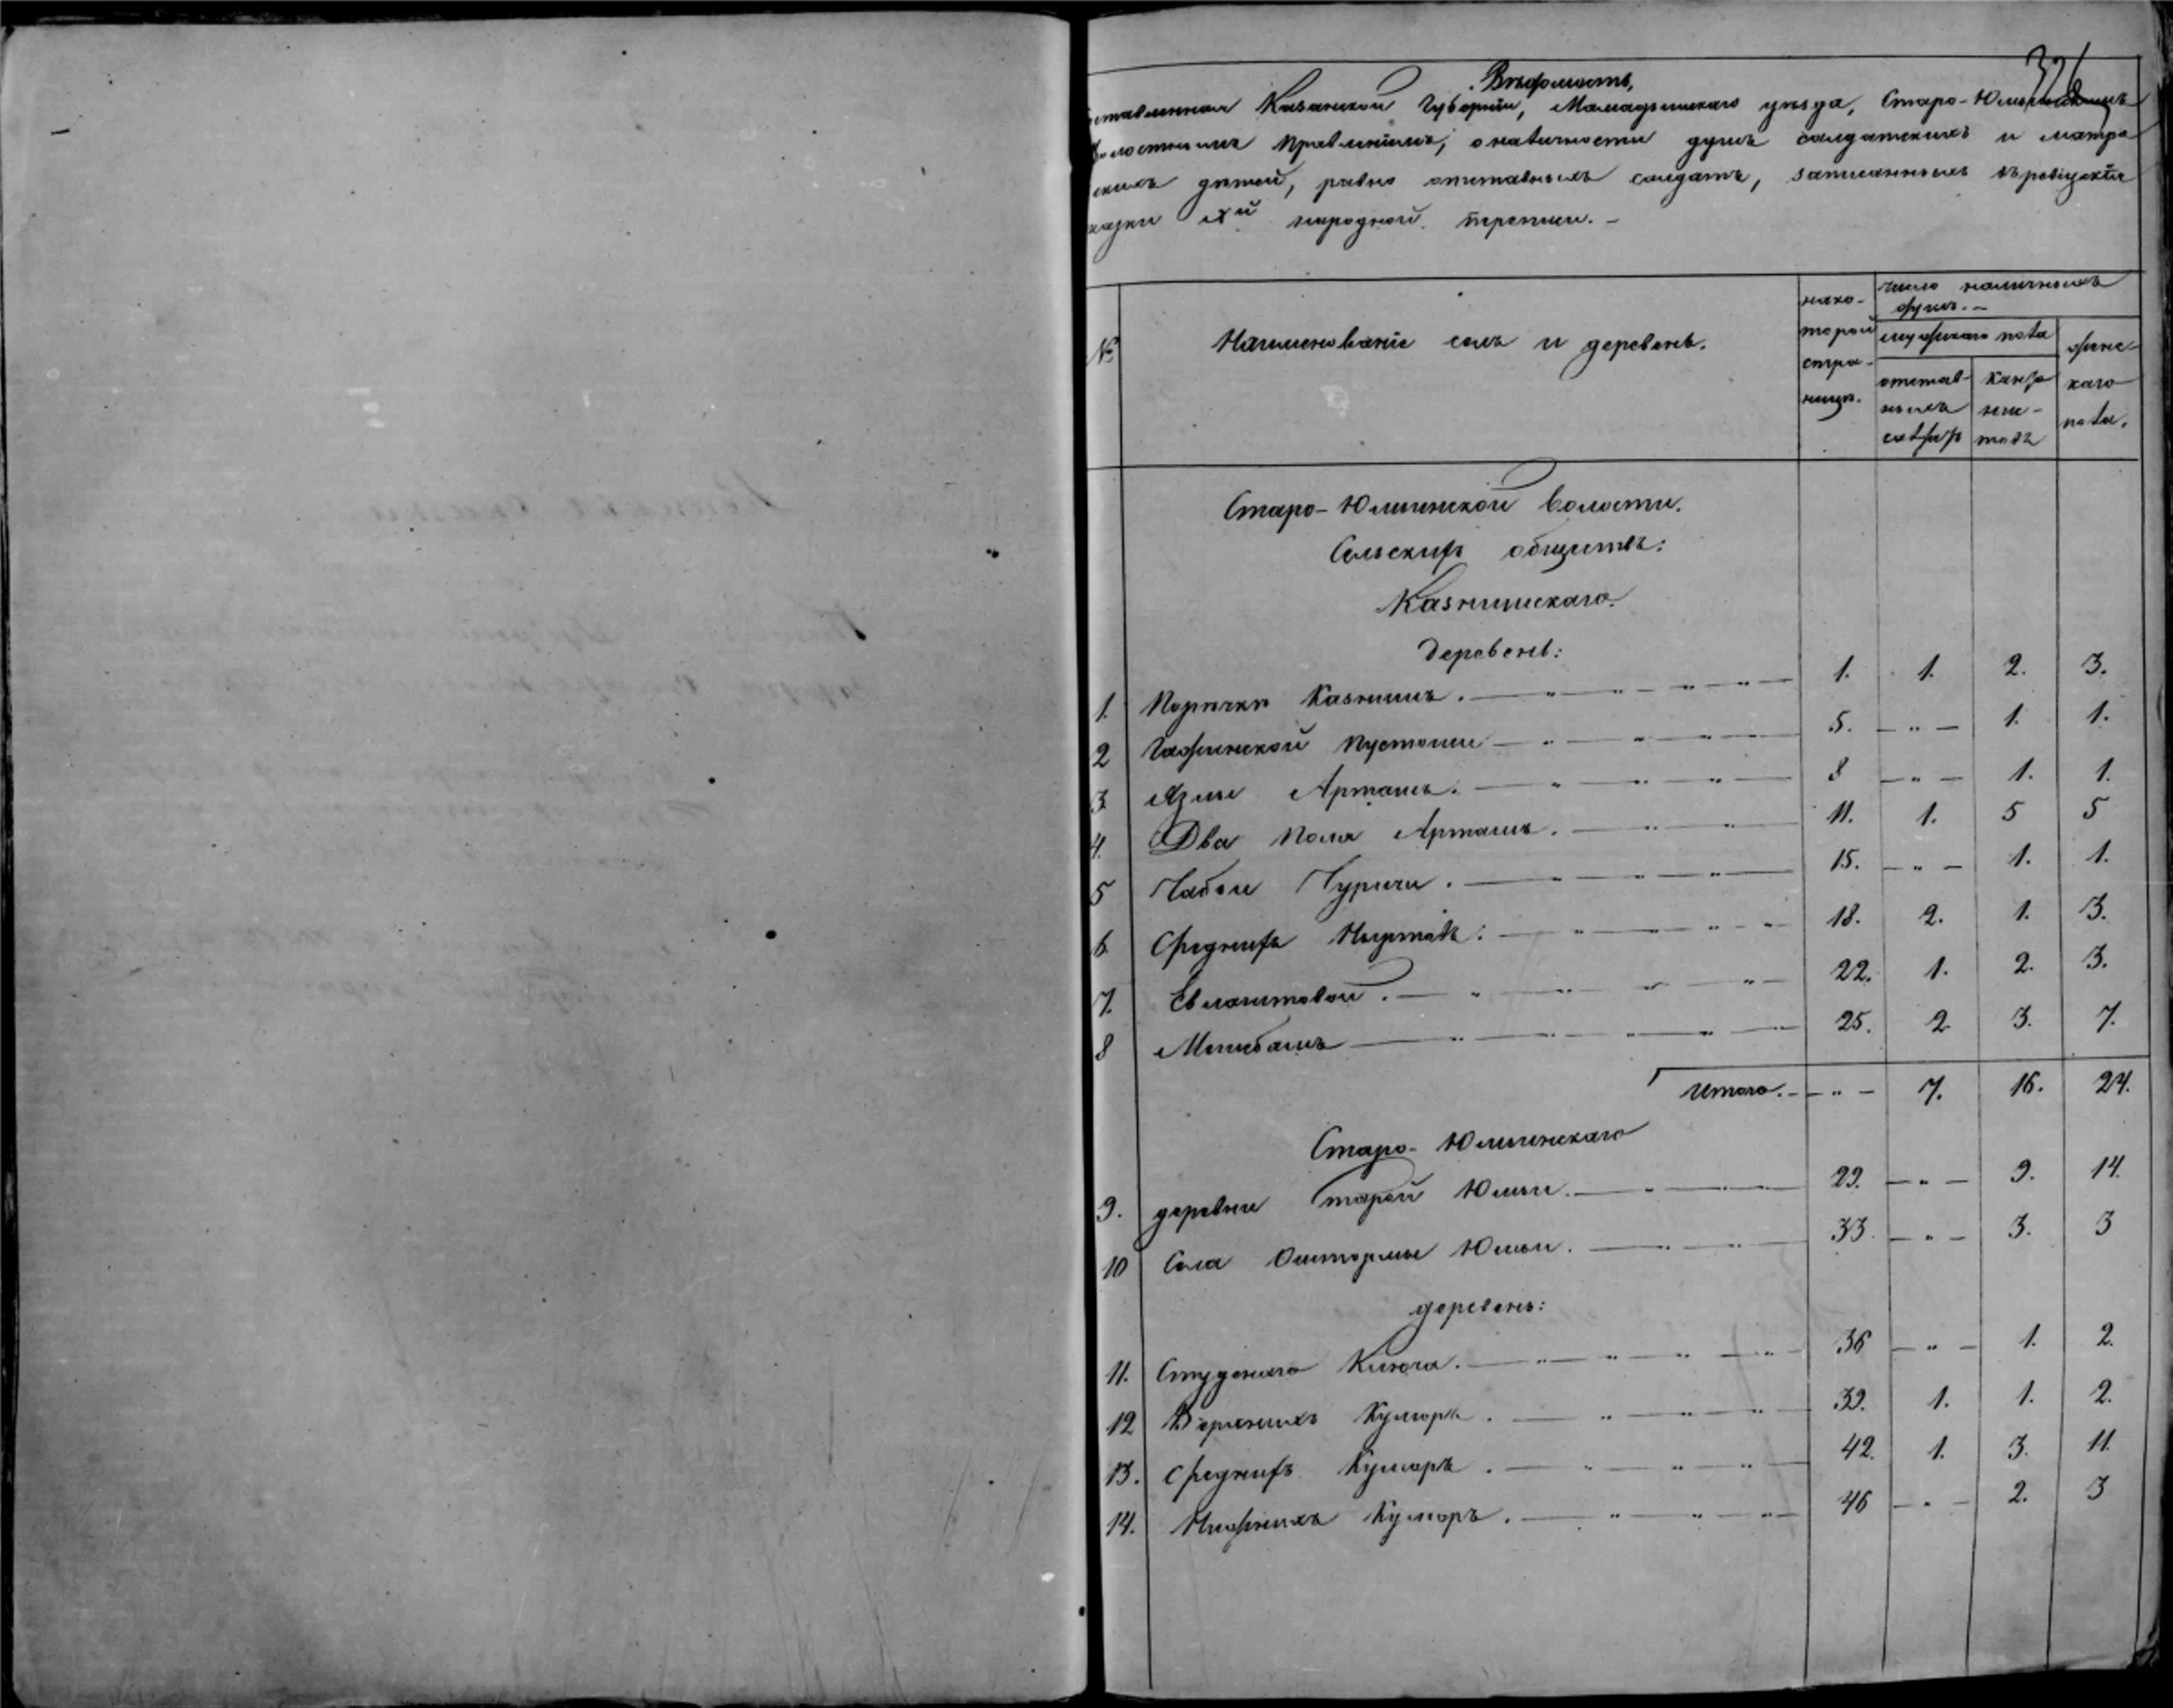 326
Вѣдомость,
ставленная Казанской Губерніи, Мамадышскаго уѣзда, Старо-Юмьинскимъ
Волостнымъ Правленіемъ, о наличности душъ солдатскихъ и матро
скихъ дѣтей, равно отставныхъ солдатъ, записанныхъ въ ревизскія
казки Xй народной переписи. –
№ Наименованіе селъ и деревень. на ко-
торой
стра-
ницѣ.
число наличныхъ
душъ. –
мужскаго пола
отстав-
ныхъ
солдатъ
канто
нис-
товъ
женс-
каго
пола.
Старо-Юмьинской волости.
Сельскихъ обществъ:
Казнишскаго.
Деревень:
1. Порѣчки Казнишъ. — " — " — " — " — 1. 1. 2. 3.
2 Пустоши — " — " — " — 5. — " — 1. 1.
3. Арташъ. — " — " — " — 8 — " — 1. 1.
4. Два Поля Арташъ. — " — " — 11. 1. 5 5
5 Чабьи Чурчи. — " — " — " — 15. — " — 1. 1.
6. Среднихъ Ныртовъ. — " — " — " — " 18. 2. 1. 3.
7. — " — " — " — " — 22. 1. 2. 3.
8 — " — " — " — " — 25. 2 3. 7.
Итого. – — " — 7. 16. 24.
Старо-Юмьинскаго
9. деревни Старой Юмьи. — " — " — 29. — " — 9. 14.
10 Села Оштормы Юмьи. — " — " — 33. — " — 3. 3
деревень:
11. Студенаго Ключа. — " — " — " — " — 36 — " — 1. 2.
12 Верхнихъ Кузморъ. — " — " — " — 39. 1. 1. 2.
13. Среднихъ Кумаръ. — " — " — " — 42. 1. 3. 11.
14. Нижнихъ Кумаръ. — " — " — " — 46 — " — 2. 3